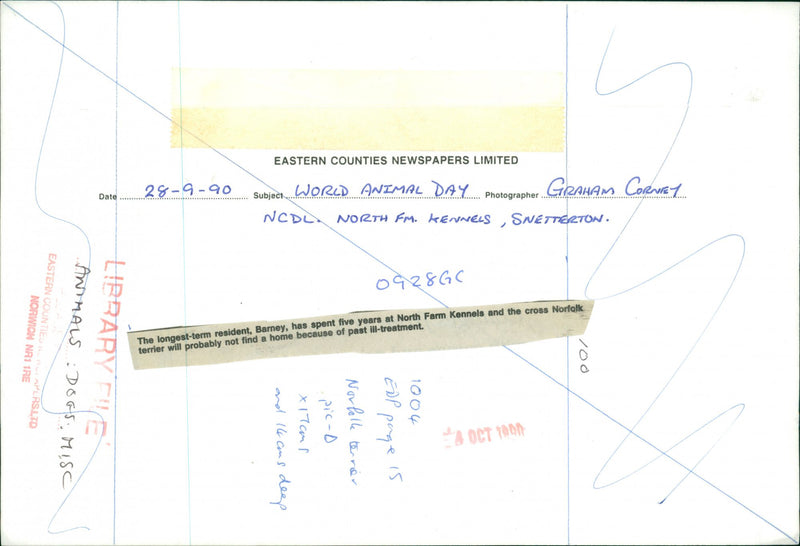 EASTERN COUNTIES NEWSPAPERS LIMITED
Date 28-9-90 Subject WORLD ANIMAL DAY Photographer GRAHAM CORNEY
NCDL. NORTH FM. KENNELS, SNETTERTON.
0928GC
The longest-term resident, Barney, has spent five years at North Farm Kennels and the cross Norfolk
terrier will probably not find a home because of past ill-treatment.
100
1004
EDP page 15
Norfolk terrier
pic-D
x 17cms
and 14cms deep
4 OCT 1990
LIBRARY FILE
ANIMALS: DOGS. MISC
EASTERN COUNTIES LTD
NORWICH NR1 1RE